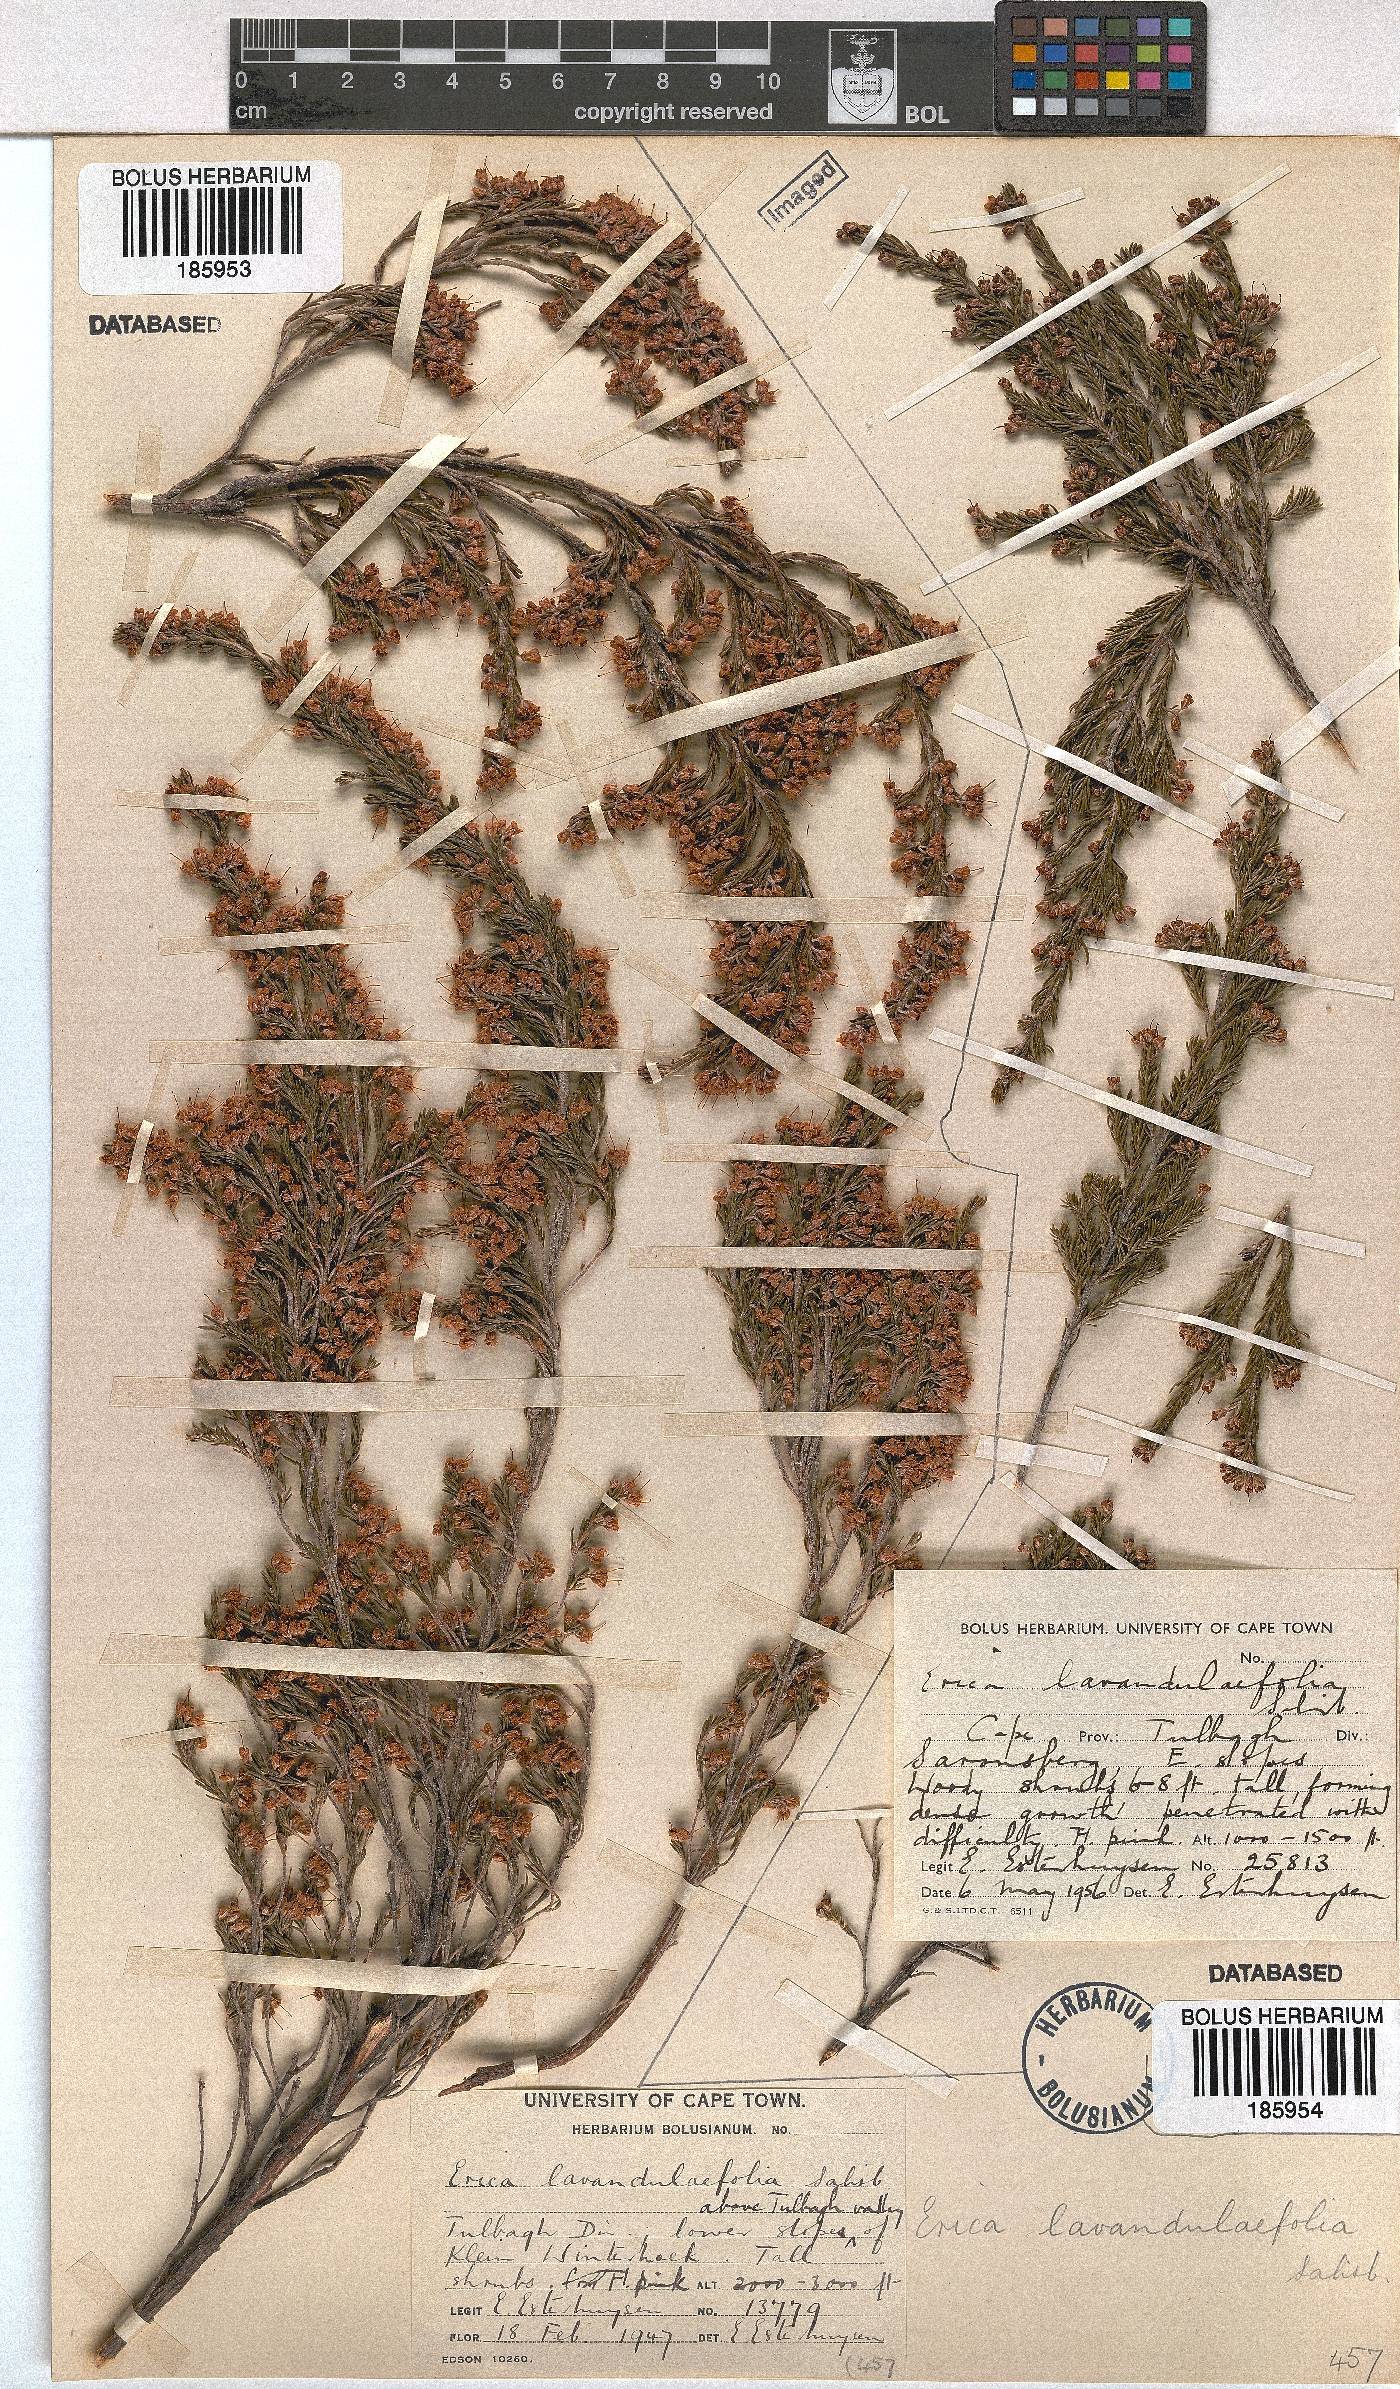 0 1 2 3 4 5 6 7 8 9 10
cm copyright reserved BOL
BOLUS HERBARIUM
185953
DATABASED
Imaged
BOLUS HERBARIUM. UNIVERSITY OF CAPE TOWN
No.
Erica lavandulaefolia
Salisb.
Cape Prov.: Tulbagh Div.:
Saronsberg, E. slopes
Woody shrubs 6-8 ft. tall, forming
dense growth penetrated with
difficulty. Fl. pink. Alt. 1000 - 1500 ft.
Legit E. Esterhuysen No. 25813
Date 6 May 1956 Det. E. Esterhuysen
G. & S. LTD. C.T. 6511
DATABASED
HERBARIUM BOLUSIANUM
BOLUS HERBARIUM
185954
UNIVERSITY OF CAPE TOWN.
HERBARIUM BOLUSIANUM. No.
Erica lavandulaefolia Salisb
above Tulbagh valley
Tulbagh Div., lower slopes ^ of
Klein Winterhoek. Tall
shrubs. Fl. pink ALT 2000-3000 ft
LEGIT E Esterhuysen NO. 13779
FLOR 18 Feb. 1947 DET E Esterhuysen
EDSON 10260.
(457
Erica lavandulaefolia
Salisb.
457